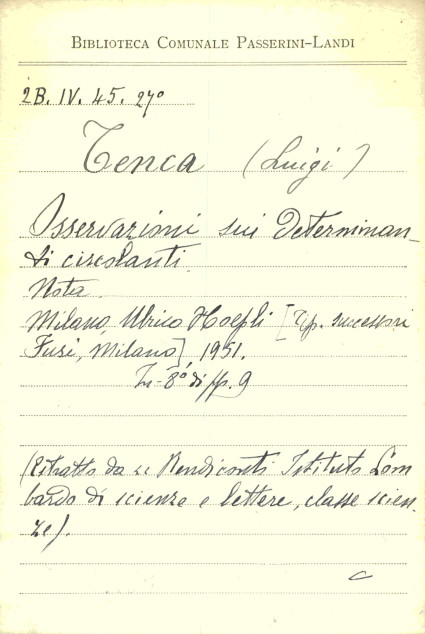 BIBLIOTECA COMUNALE PASSERINI-LANDI
2B. IV. 45. 27º
Tenca (Luigi)
Osservazioni sui determinan-
ti circolanti.
Nota.
Milano, Ulrico Hoepli [Tip. successori
Fusi, Milano], 1951.
In-8º di pp. 9
(Estratto da "Rendiconti Istituto Lom
bardo di scienze e lettere, classe scien-
ze).
C